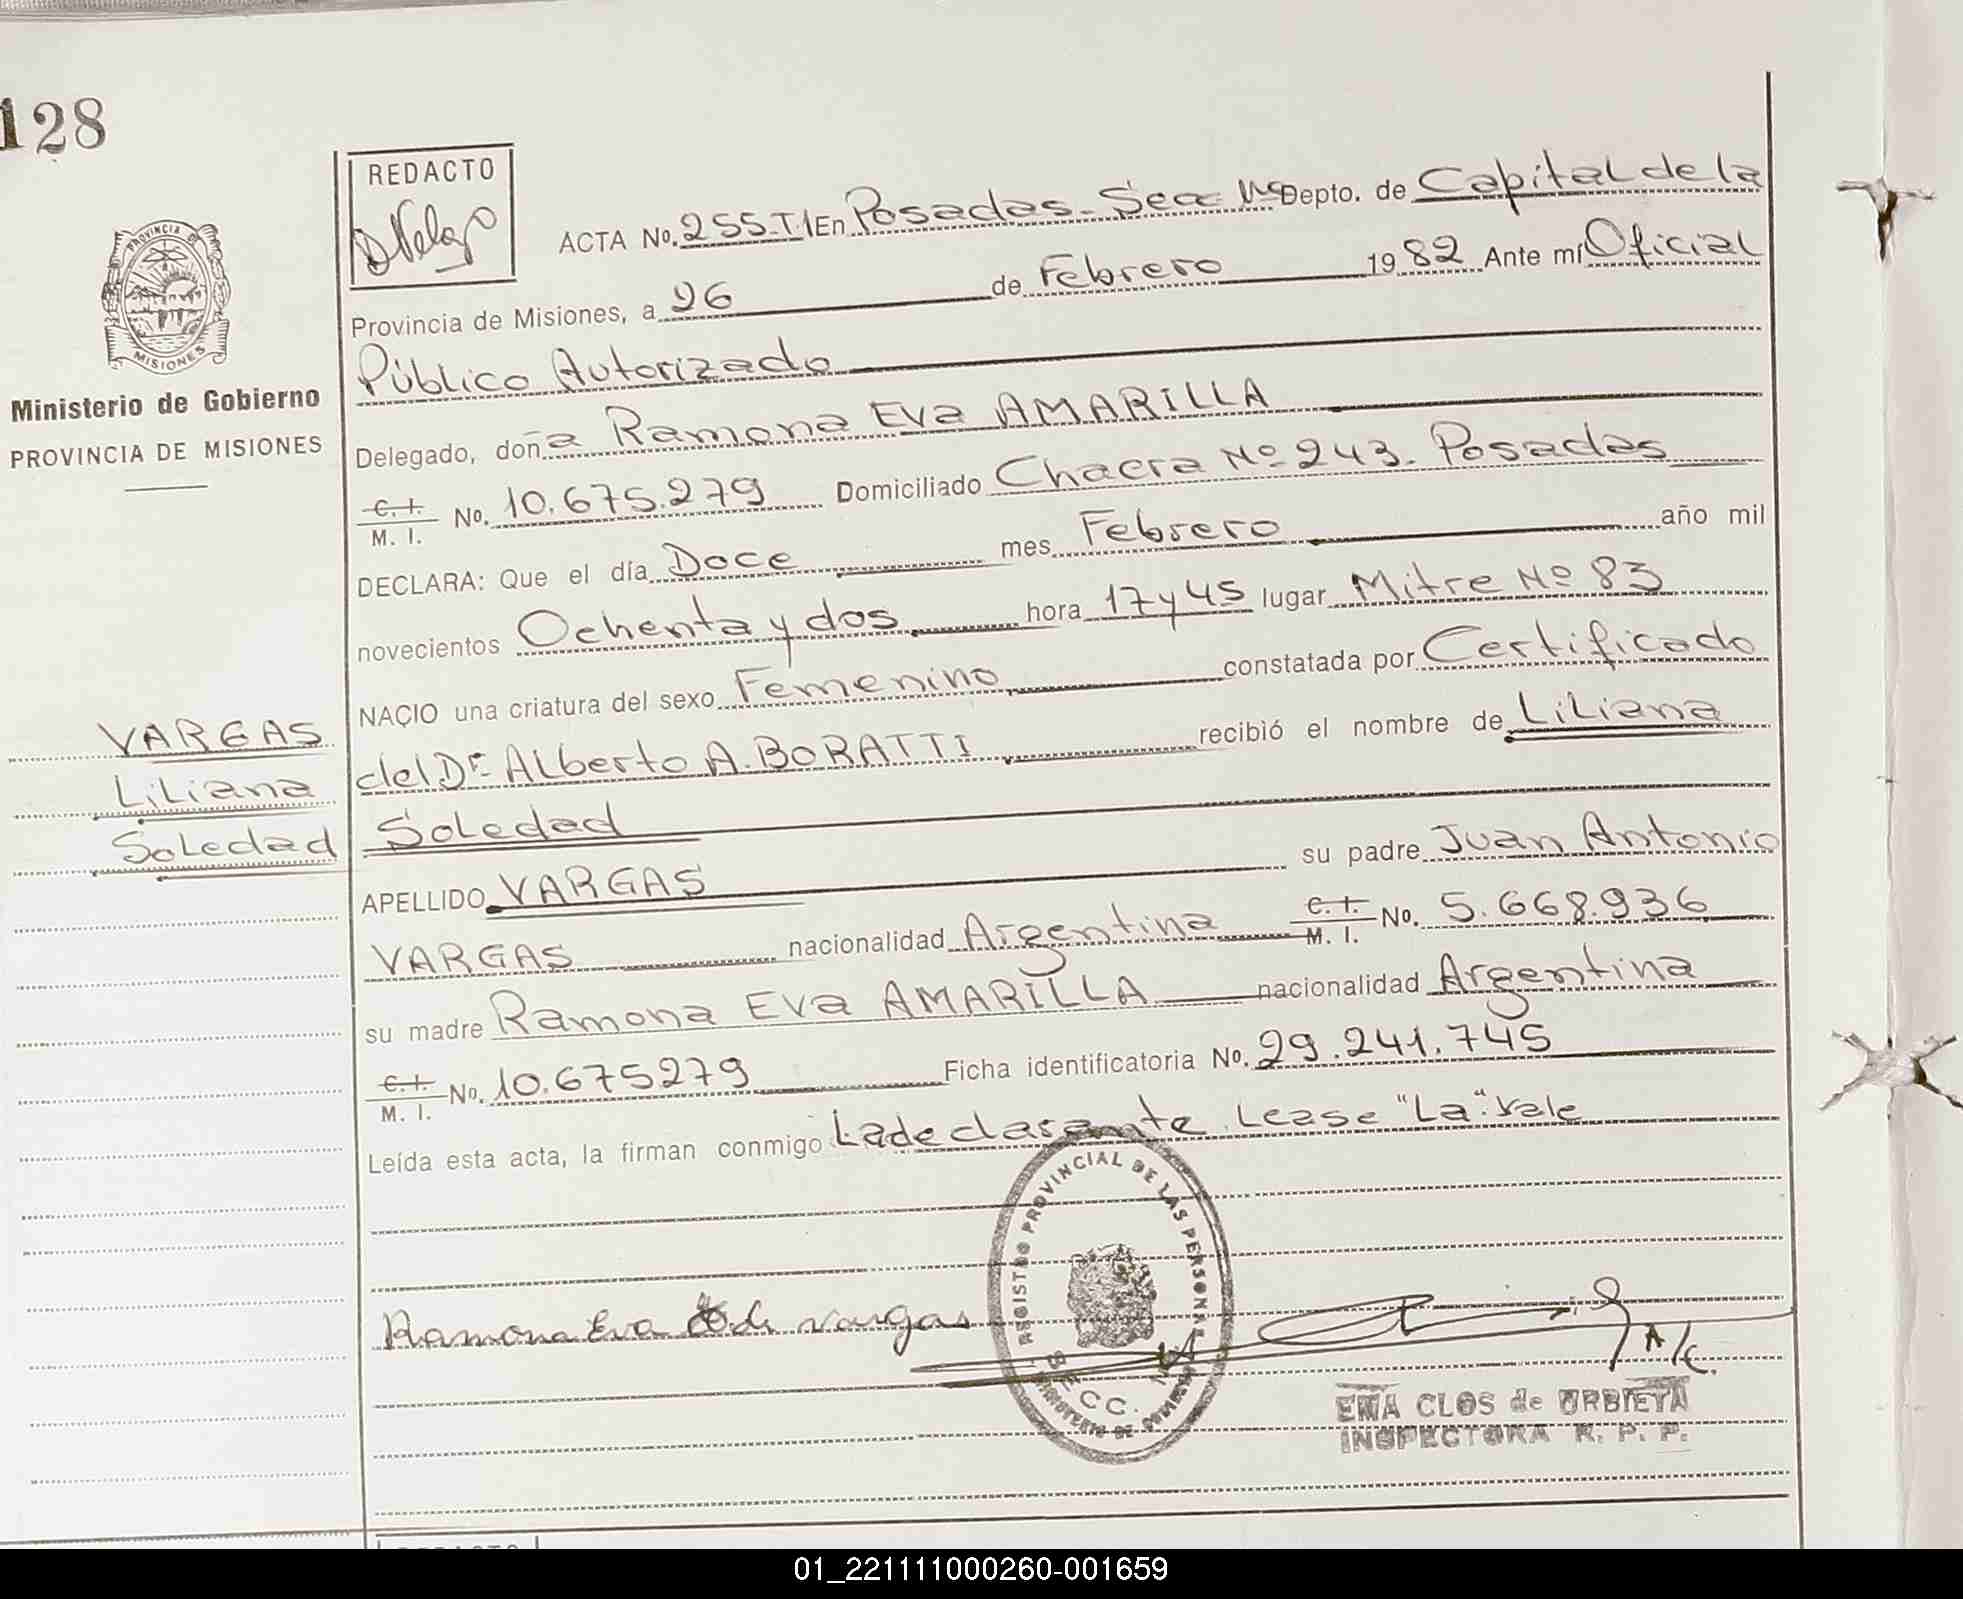 128
REDACTO
ACTA No. 255-T.1 En Posadas - Secc Depto. de Capital de la
Provincia de Misiones, a 26 de Febrero 1982 Ante mí Oficial
Público Autorizado
Delegado, doña Ramona Eva AMARILLA
C. I. M. I. No. 10.675.279 Domiciliado Chacra Nº 243. Posadas
DECLARA: Que el día Doce mes Febrero año mil
novecientos Ochenta y dos hora 17 y 45 lugar Mitre Nº 83
NACIO una criatura del sexo Femenino constatada por Certificado
del Dr. Alberto A. BORATTI recibió el nombre de Liliana
Soledad
APELLIDO VARGAS su padre Juan Antonio
VARGAS nacionalidad Argentina C. I. M. I. No. 5.668.936
su madre Ramona Eva AMARILLA nacionalidad Argentina
C. I. M. I. No. 10.675279 Ficha identificatoria No. 29.241.745
Leída esta acta, la firman conmigo La declarante. Lease "La": Vale
PROVINCIA DE
MISIONES
Ministerio de Gobierno
PROVINCIA DE MISIONES
VARGAS
Liliana
Soledad
Ramona Eva de Vargas
REGISTRO PROVINCIAL DE LAS PERSONAS
MINISTERIO DE GOBIERNO
SECC.
A/C.
EMA CLOS de URBIETA
INSPECTORA R. P. P.
REDACTO
01_221111000260-001659